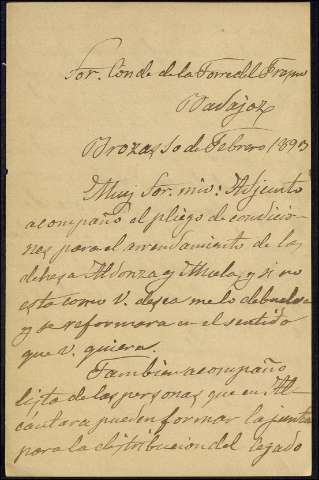 Sor. Conde de la Torre del Fresno
Badajoz
Brozas 10 de Febrero 1893
Muy Sor. mio: Adjunto
acompaño el pliego de condicio-
nes para el arrendamiento de las
dehesa Aldonza y Mula, y si no
esta como V. desea me lo debuelve
y se reformara en el sentido
que V. quiera.
Tambien acompaño
lista de las personas que en Al-
cántara pueden formar la junta
para la distribucion del legado